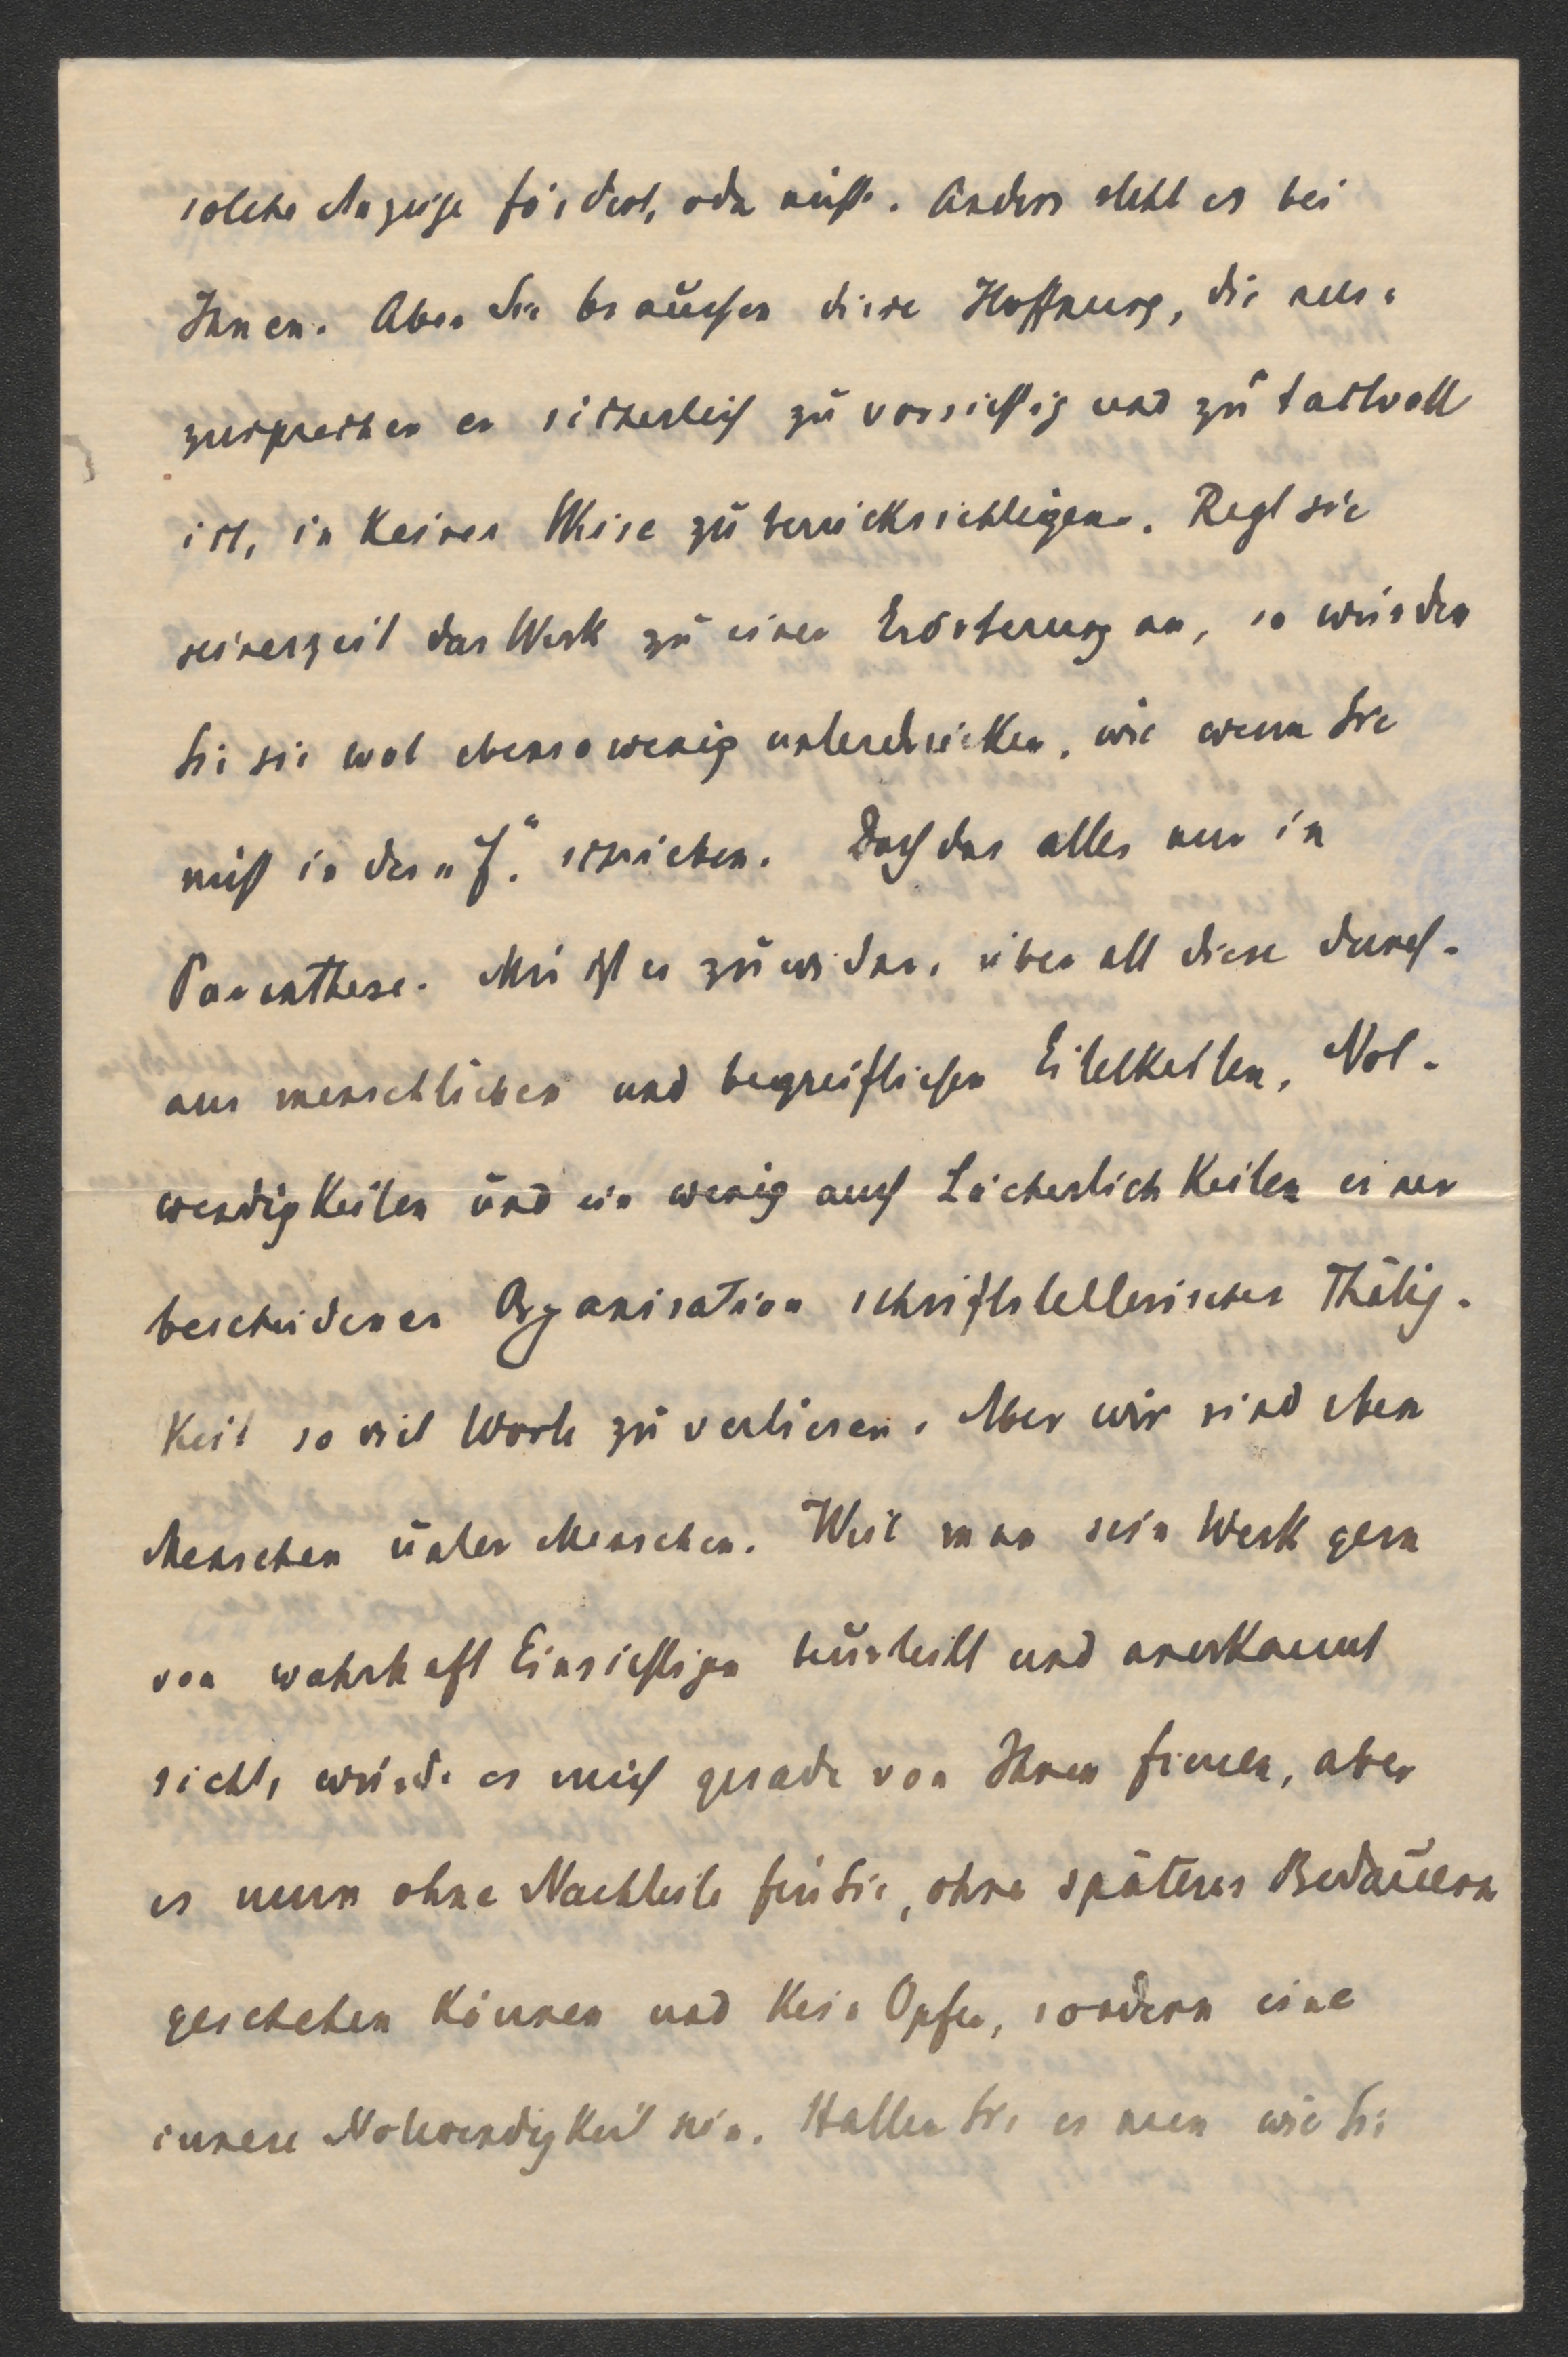 solche Anzeige fördert, oder nicht. Anders steht es bei
Ihnen. Aber Sie brauchen diese Hoffnung, die aus-
zusprechen er sicherlich zu vorsichtig und zu taktvoll
ist, in keiner Weise zu berücksichtigen. Regt Sie
seinerzeit das Werk zu einer Erörterung an, so würden
Sie sie wol ebensowenig unterdrücken, wie wenn Sie
nicht in der „J.“ schrieben. Doch das alles nur in
Paranthese. Mir ist es zuwider, über all diese durch-
aus menschlichen und begreiflichen Eitelkeiten, Not-
wendigkeiten und ein wenig auch Lächerlichkeiten einer
bescheidenen Organisation schriftstellerischer Thätig-
keit so viel Worte zu verlieren. Aber wir sind eben
Menschen unter Menschen. Weil man sein Werk gern
von wahrhaft Einsichtigen beurteilt und anerkannt
sieht, würde es mich gerade von Ihnen freuen, aber
es muss ohne Nachteile für Sie, ohne späteres Bedauern
geschehen können und kein Opfer, sondern eine
innere Notwendigkeit sein. Halten Sie es nun wie Sie